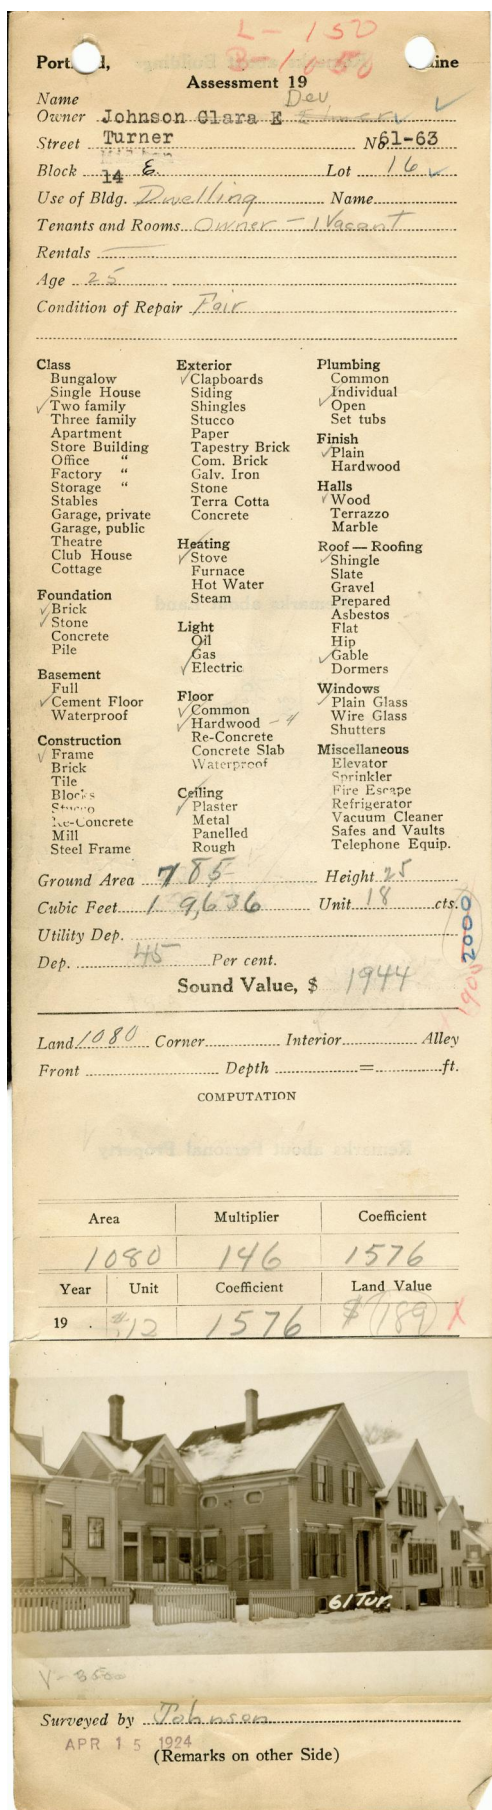 L - 150
B - 1650
Port and, Maine
Assessment 19
Dev
Name
Owner Johnson Clara E Elmer
Street Turner No. 61-63
Block 14 E Lot 16
Use of Bldg. Dwelling Name
Tenants and Rooms Owner - 1 Vacant
Rentals
Age 25
Condition of Repair Fair
Class
Bungalow
Single House
Two family
Three family
Apartment
Store Building
Office "
Factory "
Storage "
Stables
Garage, private
Garage, public
Theatre
Club House
Cottage
Foundation
Brick
Stone
Concrete
Pile
Basement
Full
Cement Floor
Waterproof
Construction
Frame
Brick
Tile
Blocks
Stucco
Re-Concrete
Mill
Steel Frame
Exterior
Clapboards
Siding
Shingles
Stucco
Paper
Tapestry Brick
Com. Brick
Galv. Iron
Stone
Terra Cotta
Concrete
Heating
Stove
Furnace
Hot Water
Steam
Light
Oil
Gas
Electric
Floor
Common
Hardwood - 4
Re-Concrete
Concrete Slab
Waterproof
Ceiling
Plaster
Metal
Panelled
Rough
Plumbing
Common
Individual
Open
Set tubs
Finish
Plain
Hardwood
Halls
Wood
Terrazzo
Marble
Roof — Roofing
Shingle
Slate
Gravel
Prepared
Asbestos
Flat
Hip
Gable
Dormers
Windows
Plain Glass
Wire Glass
Shutters
Miscellaneous
Elevator
Sprinkler
Fire Escape
Refrigerator
Vacuum Cleaner
Safes and Vaults
Telephone Equip.
Ground Area 785 Height 25
Cubic Feet 19,636 Unit 18 cts.
Utility Dep.
Dep. 45 Per cent.
2000
1900
Sound Value, $ 1944
Land 1080 Corner Interior Alley
Front Depth = ft.
COMPUTATION
Area Multiplier Coefficient
1080 146 1576
Year Unit Coefficient Land Value
19 .12 1576 $ 189 X
61 Tur.
V - 3500
Surveyed by Johnson
APR 15 1924
(Remarks on other Side)